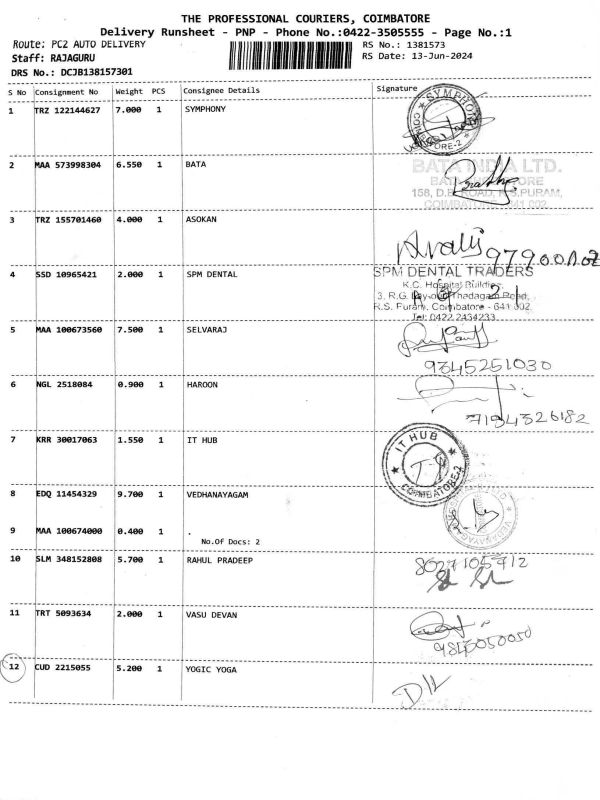 THE PROFESSIONAL COURIERS, COIMBATORE
Delivery Runsheet - PNP - Phone No.:0422-3505555 - Page No.:1
Route: PC2 AUTO DELIVERY RS No.: 1381573
Staff: RAJAGURU RS Date: 13-Jun-2024
DRS No.: DCJB138157301
S No Consignment No Weight PCS Consignee Details Signature
1 TRZ 122144627 7.000 1 SYMPHONY
COIMBATORE-2
2 MAA 573998304 6.550 1 BATA
BATA INDIA LTD.
COIMBATORE 641 002
3 TRZ 155701460 4.000 1 ASOKAN
4 SSD 10965421 2.000 1 SPM DENTAL
SPM DENTAL TRADERS
K.C. Hospital Building
3, R.G. Lay-out Thadagam Road,
R.S. Puram, Coimbatore - 641 002.
Tel: 0422 2434233
5 MAA 100673560 7.500 1 SELVARAJ
9345251030
6 NGL 2518084 0.900 1 HAROON
7194326182
7 KRR 30017063 1.550 1 IT HUB
IT HUB
COIMBATORE-2
8 EDQ 11454329 9.700 1 VEDHANAYAGAM
9 MAA 100674000 0.400 1 .
No.Of Docs: 2
10 SLM 348152808 5.700 1 RAHUL PRADEEP
8027105712
11 TRT 5093634 2.000 1 VASU DEVAN
12 CUD 2215055 5.200 1 YOGIC YOGA